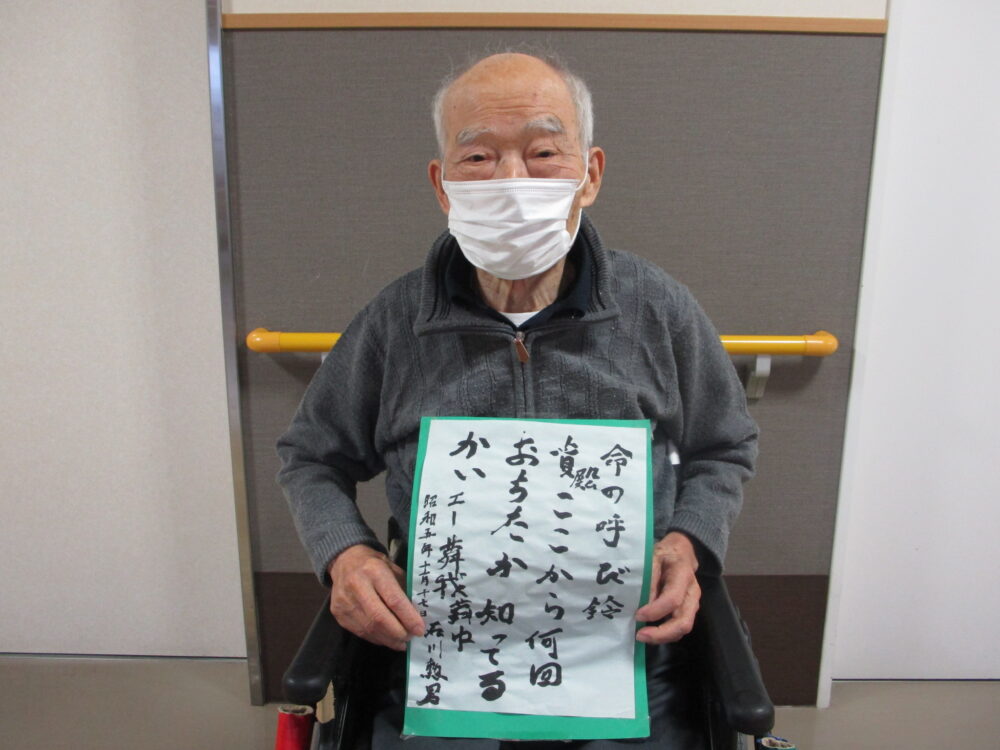 命の呼び鈴
貴殿ここから何回
おちたか知ってる
かい
エー 中
昭和五年十一月十七日 石川男